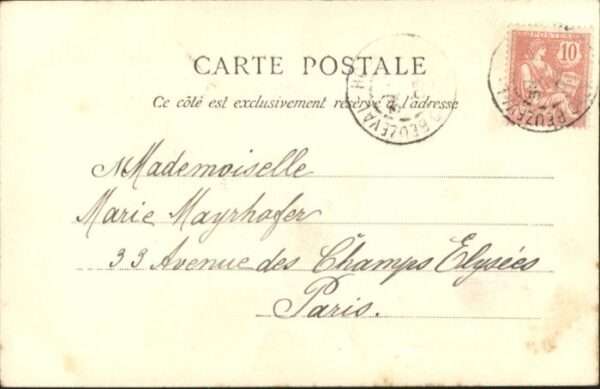 CARTE POSTALE
Ce côté est exclusivement réservé à l'adresse
10
POSTES
BEUZEVAL
BEUZEVAL
Mademoiselle
Marie Mayrhofer
33 Avenue des Champs Elysées
Paris.